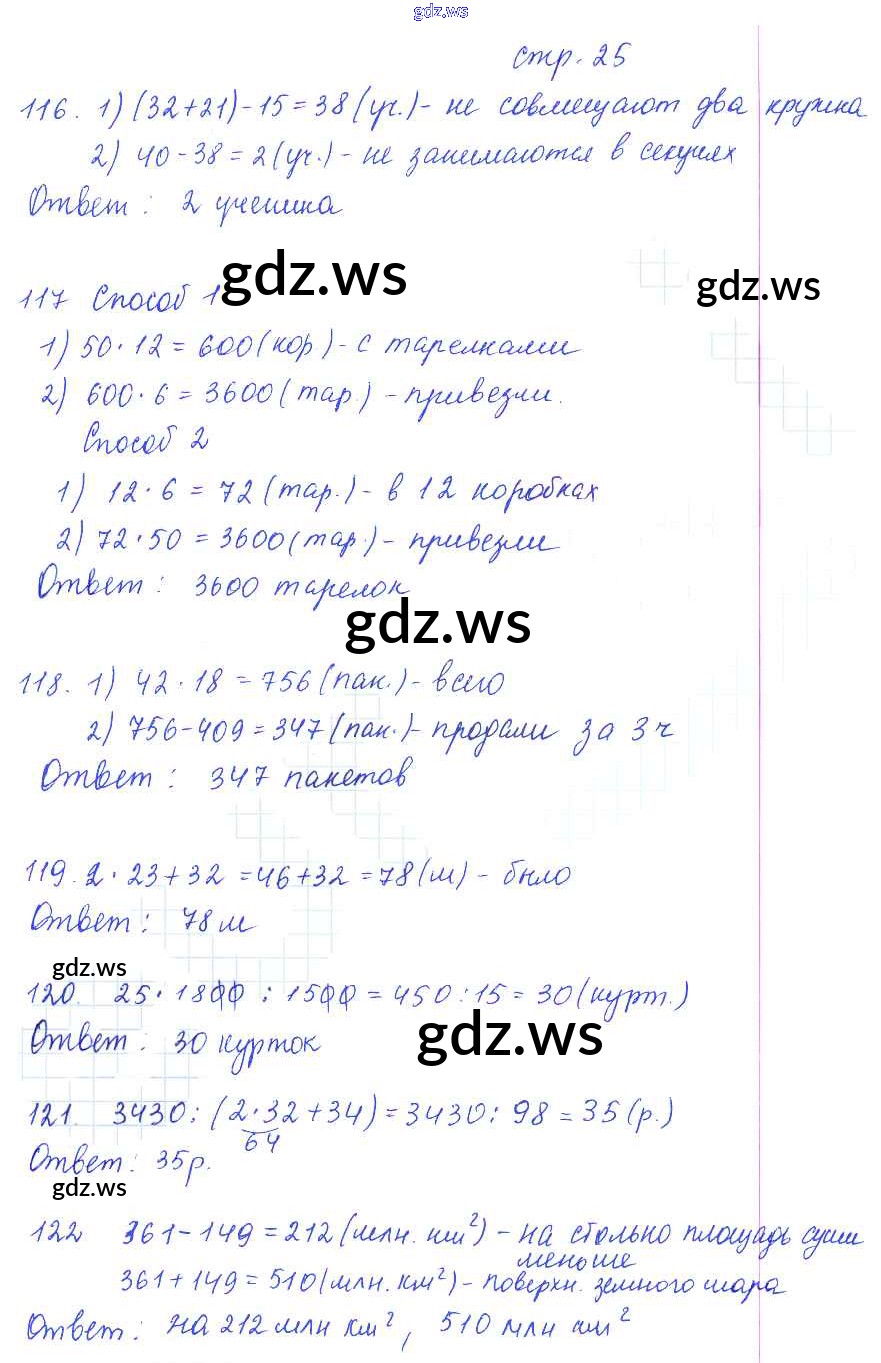 gdz.ws
стр. 25
116. 1) (32+21)-15=38(уч.)- не совмещают два кружка
2) 40-38=2(уч.)- не занимаются в секциях
Ответ: 2 ученика
gdz.ws
gdz.ws
117 Способ 1
1) 50·12=600(кор)- с тарелками
2) 600·6=3600(тар.) - привезли.
Способ 2
1) 12·6=72(тар.)- в 12 коробках
2) 72·50=3600(тар.)- привезли
Ответ: 3600 тарелок
gdz.ws
118. 1) 42·18=756(пак.)- всего
2) 756-409=347(пак.)- продали за 3ч
Ответ: 347 пакетов
119. 2·23+32=46+32=78(м) - было
Ответ: 78м
gdz.ws
120. 25·1800:1500=450:15=30(курт.)
Ответ: 30 курток
gdz.ws
121. 3430:(2·32+34)=3430:98=35(р.)
64
Ответ: 35р.
gdz.ws
122 361-149=212(млн. км²)- на столько площадь суши
меньше
361+149=510(млн. км²)- поверхн. земного шара
Ответ: на 212 млн км², 510 млн км²